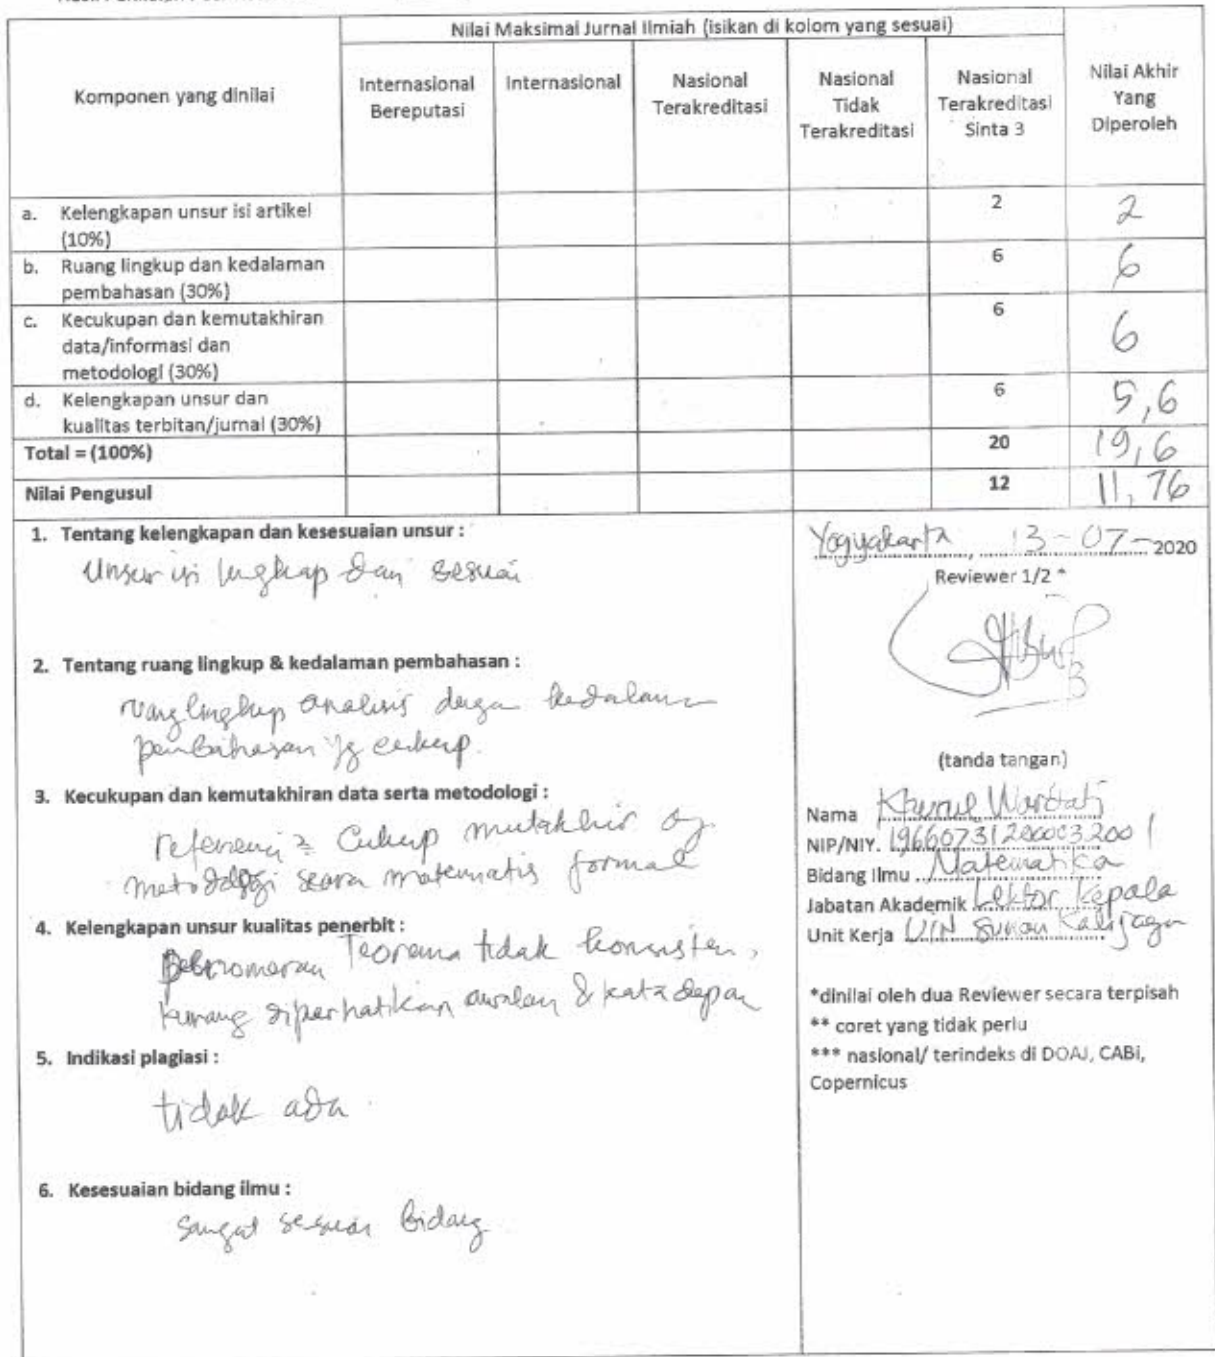 Nilai Maksimal Jurnal Ilmiah (isikan di kolom yang sesuai)
Komponen yang dinilai
Internasional Bereputasi
Internasional
Nasional Terakreditasi
Nasional Tidak Terakreditasi
Nasional Terakreditasi Sinta 3
Nilai Akhir Yang Diperoleh
a. Kelengkapan unsur isi artikel (10%) 2 2
b. Ruang lingkup dan kedalaman pembahasan (30%) 6 6
c. Kecukupan dan kemutakhiran data/informasi dan metodologi (30%) 6 6
d. Kelengkapan unsur dan kualitas terbitan/jurnal (30%) 6 5,6
Total = (100%) 20 19,6
Nilai Pengusul 12 11,76
1. Tentang kelengkapan dan kesesuaian unsur :
Unsur isi lengkap dan sesuai
2. Tentang ruang lingkup & kedalaman pembahasan :
ruang lingkup analisis dengan kedalaman
pembahasan yg cukup.
3. Kecukupan dan kemutakhiran data serta metodologi :
referensi2 Cukup mutakhir dg
metodologi secara matematis formal
4. Kelengkapan unsur kualitas penerbit :
Penomeran Teorema tidak konsisten,
kurang diperhatikan awalan & kata depan
5. Indikasi plagiasi :
tidak ada.
6. Kesesuaian bidang ilmu :
Sangat sesuai bidang
Yogyakarta, 13-07-2020
Reviewer 1/2 *
(tanda tangan)
Nama Khurul Wardati
NIP/NIY. 196607312000032001
Bidang Ilmu Matematika
Jabatan Akademik Lektor Kepala
Unit Kerja UIN Sunan Kalijaga
*dinilai oleh dua Reviewer secara terpisah
** coret yang tidak perlu
*** nasional/ terindeks di DOAJ, CABi,
Copernicus